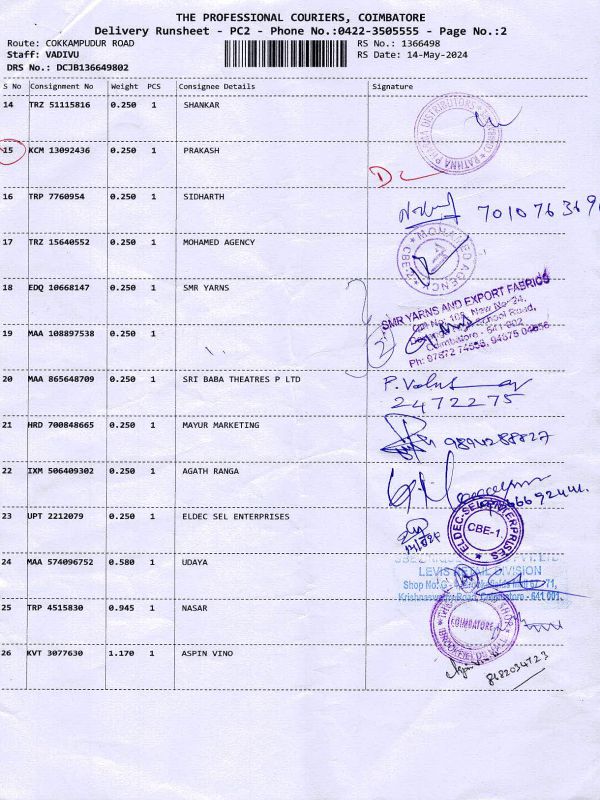 THE PROFESSIONAL COURIERS, COIMBATORE
Delivery Runsheet - PC2 - Phone No.:0422-3505555 - Page No.:2
Route: COKKAMPUDUR ROAD
RS No.: 1366498
Staff: VADIVU
RS Date: 14-May-2024
DRS No.: DCJB136649802
S No Consignment No Weight PCS Consignee Details Signature
14 TRZ 51115816 0.250 1 SHANKAR
15 KCM 13092436 0.250 1 PRAKASH
16 TRP 7760954 0.250 1 SIDHARTH
17 TRZ 15640552 0.250 1 MOHAMED AGENCY
MOHAMED AGENCY
CBE-2
18 EDQ 10668147 0.250 1 SMR YARNS
SMR YARNS AND EXPORT FABRICS
School Road,
Coimbatore - 641 002
19 MAA 108897538 0.250 1
20 MAA 865648709 0.250 1 SRI BABA THEATRES P LTD
2472275
21 HRD 700848665 0.250 1 MAYUR MARKETING
22 IXM 506409302 0.250 1 AGATH RANGA
23 UPT 2212079 0.250 1 ELDEC SEL ENTERPRISES
ELDEC SEL ENTERPRISES
CBE-1.
24 MAA 574096752 0.580 1 UDAYA
LEVIS RETAIL DIVISION
Coimbatore - 641 001.
25 TRP 4515830 0.945 1 NASAR
COIMBATORE
26 KVT 3077630 1.170 1 ASPIN VINO